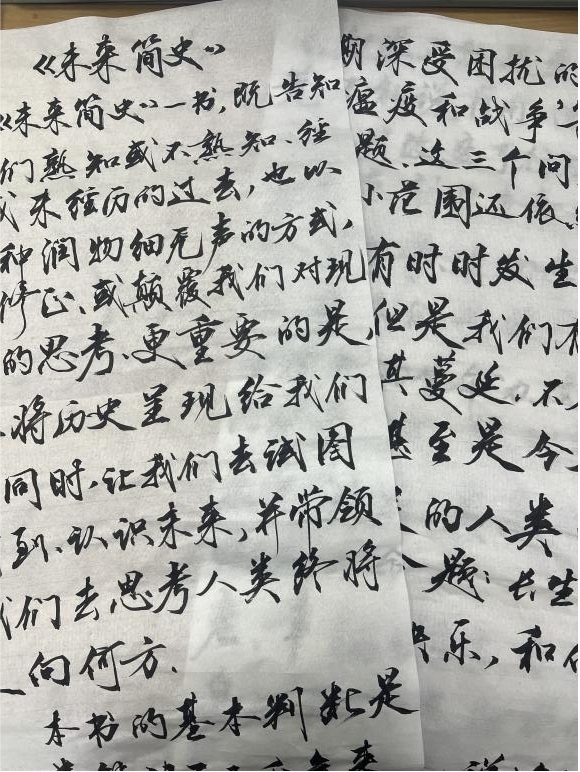 《未来简史》
《未来简史》一书，既告知
们熟知或不熟知、经
或未经历的过去，也以
种润物细无声的方式，
修正、或颠覆我们对现
的思考、更重要的是，
将历史呈现给我们
同时，让我们去试图
到、认识未来，并带领
我们去思考人类终将
向何方.
本书的基本判断是
期深受困扰的
瘟疫和战争，
题、这三个问
小范围还依
有时时发生
但是我们有
其蔓延，不
甚至是今
的人类
题：长生
快乐，和